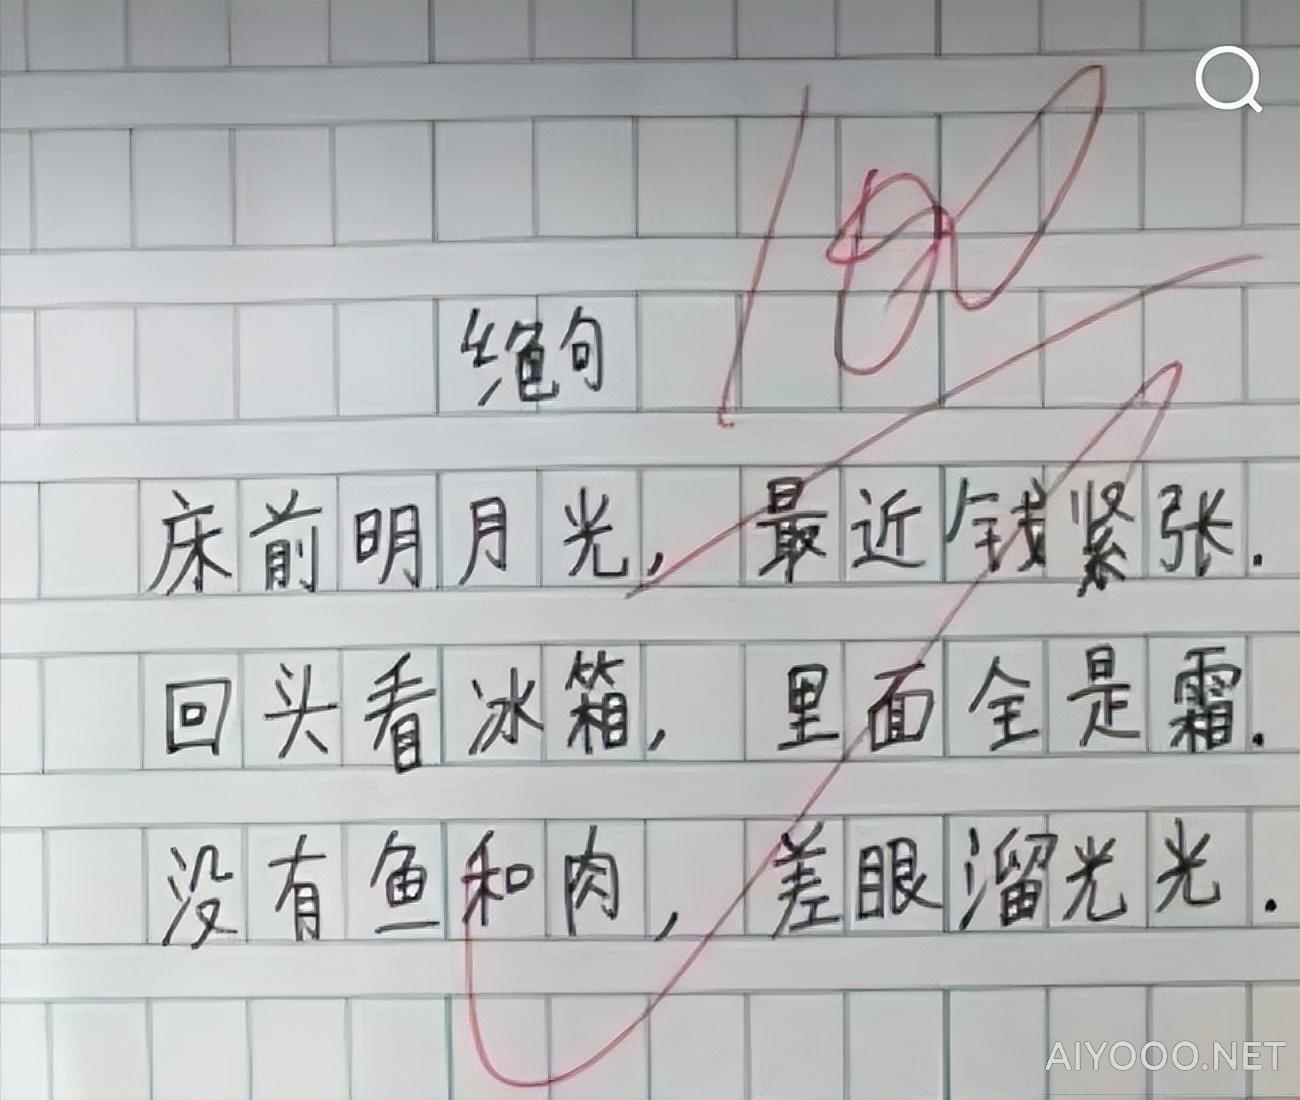 100
绝句
床前明月光，最近钱紧张.
回头看冰箱，里面全是霜.
没有鱼和肉，差眼溜光光.
AIYOOO.NET